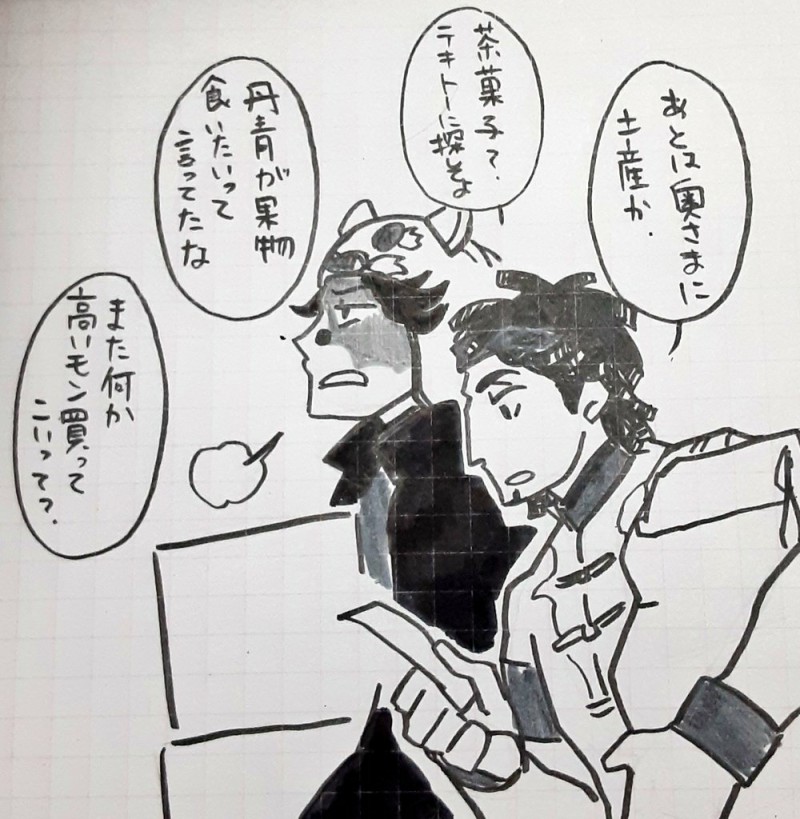 あとは奥さまに
土産か.
茶菓子？
テキトーに探そよ
丹青が果物
食いたいって
言ってたな
また何か
高いモン買って
こいって？.